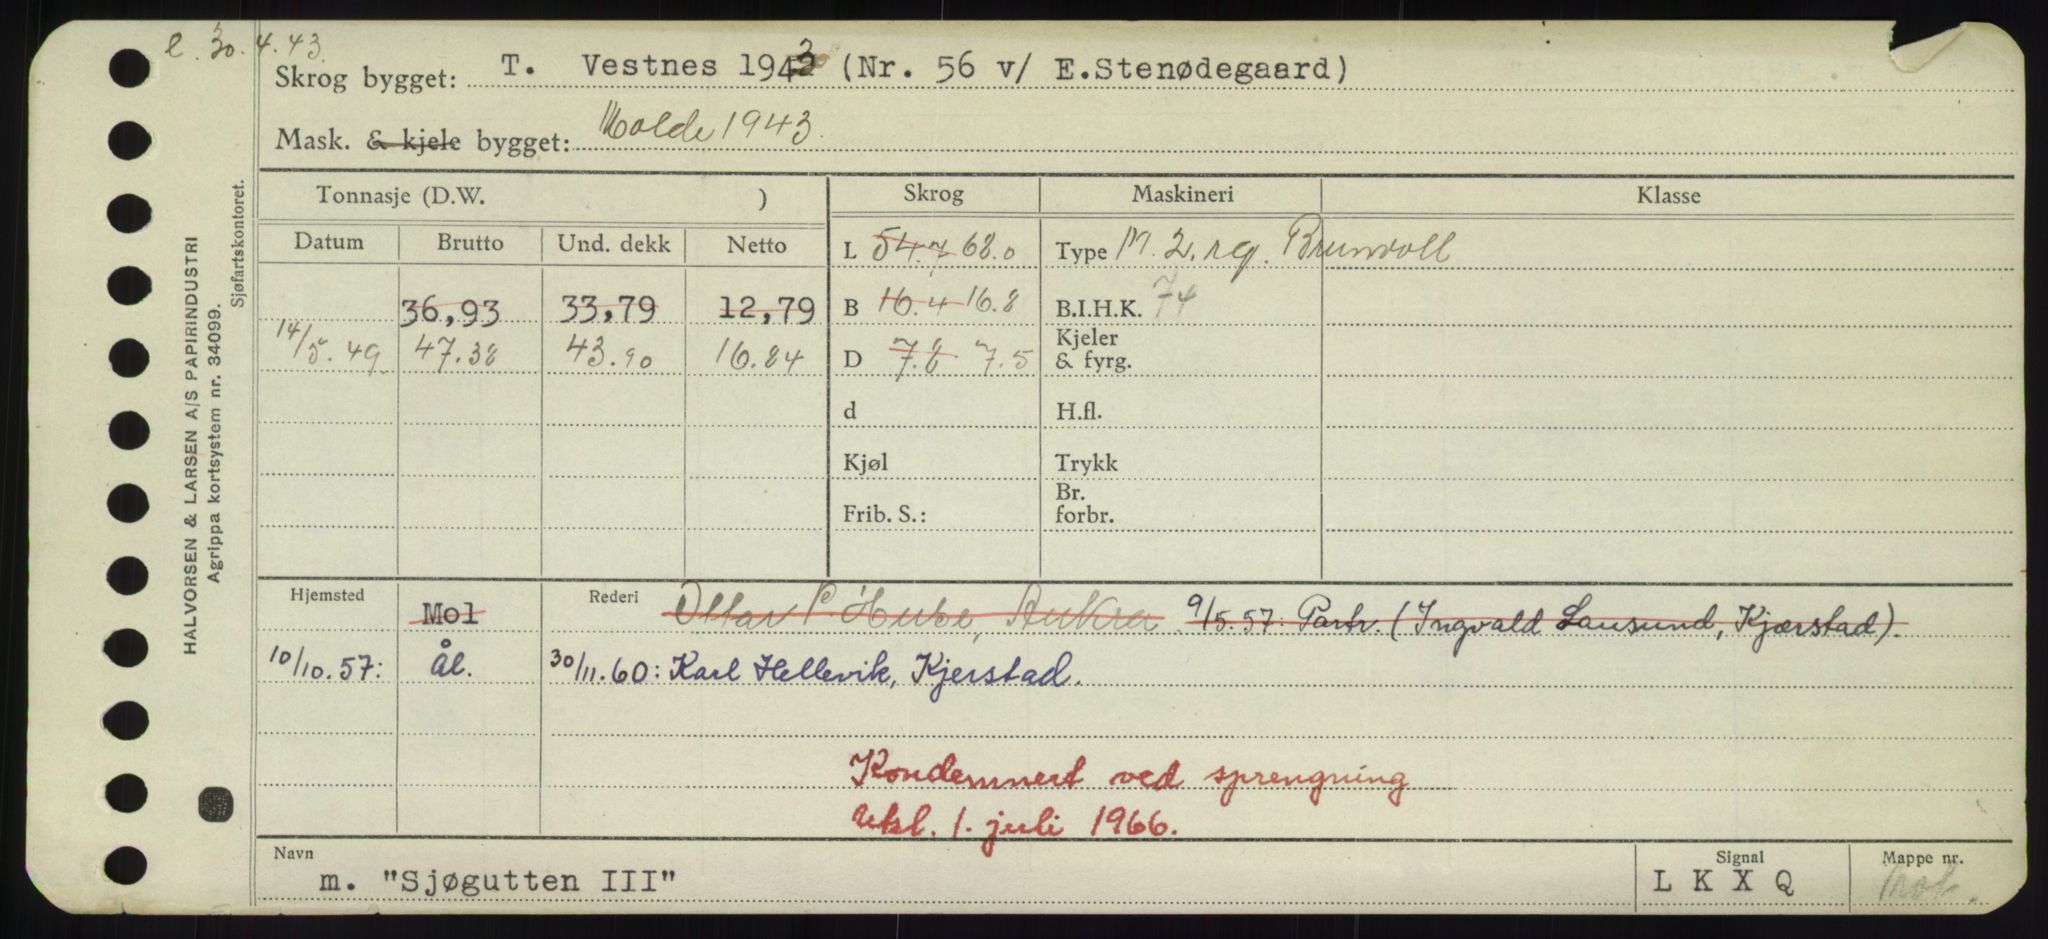 e. 30.4.43.
Skrog bygget: T. Vestnes 1943 (Nr. 56 v/ E.Stenødegaard)
Mask. & kjele bygget: Molde 1943.
Tonnasje (D.W. )
Skrog
Maskineri
Klasse
Datum Brutto Und. dekk Netto
L 54.7 68.0
Type M. 2. rg. Brunvoll
36,93 33,79 12,79
B 16.4 16.8
B.I.H.K. 74
14/5.49 47.38 43.90 16.84
D 7.8 7.5
Kjeler
& fyrg.
d
H.fl.
Kjøl
Trykk
Frib. S.:
Br.
forbr.
Hjemsted Mol
Rederi Ottar P. Aukra 9/5.57: Partr. (Ingvald Lausund, Kjærstad).
10/10.57: Ål. 30/11.60: Karl Hellevik, Kjerstad.
Kondemnert ved sprengning
utkl. 1. juli 1966.
Navn
m. "Sjøgutten III"
Signal
L K X Q
Mappe nr.
HALVORSEN & LARSEN A/S PAPIRINDUSTRI
Agrippa kortsystem nr. 34099.
Sjøfartskontoret.